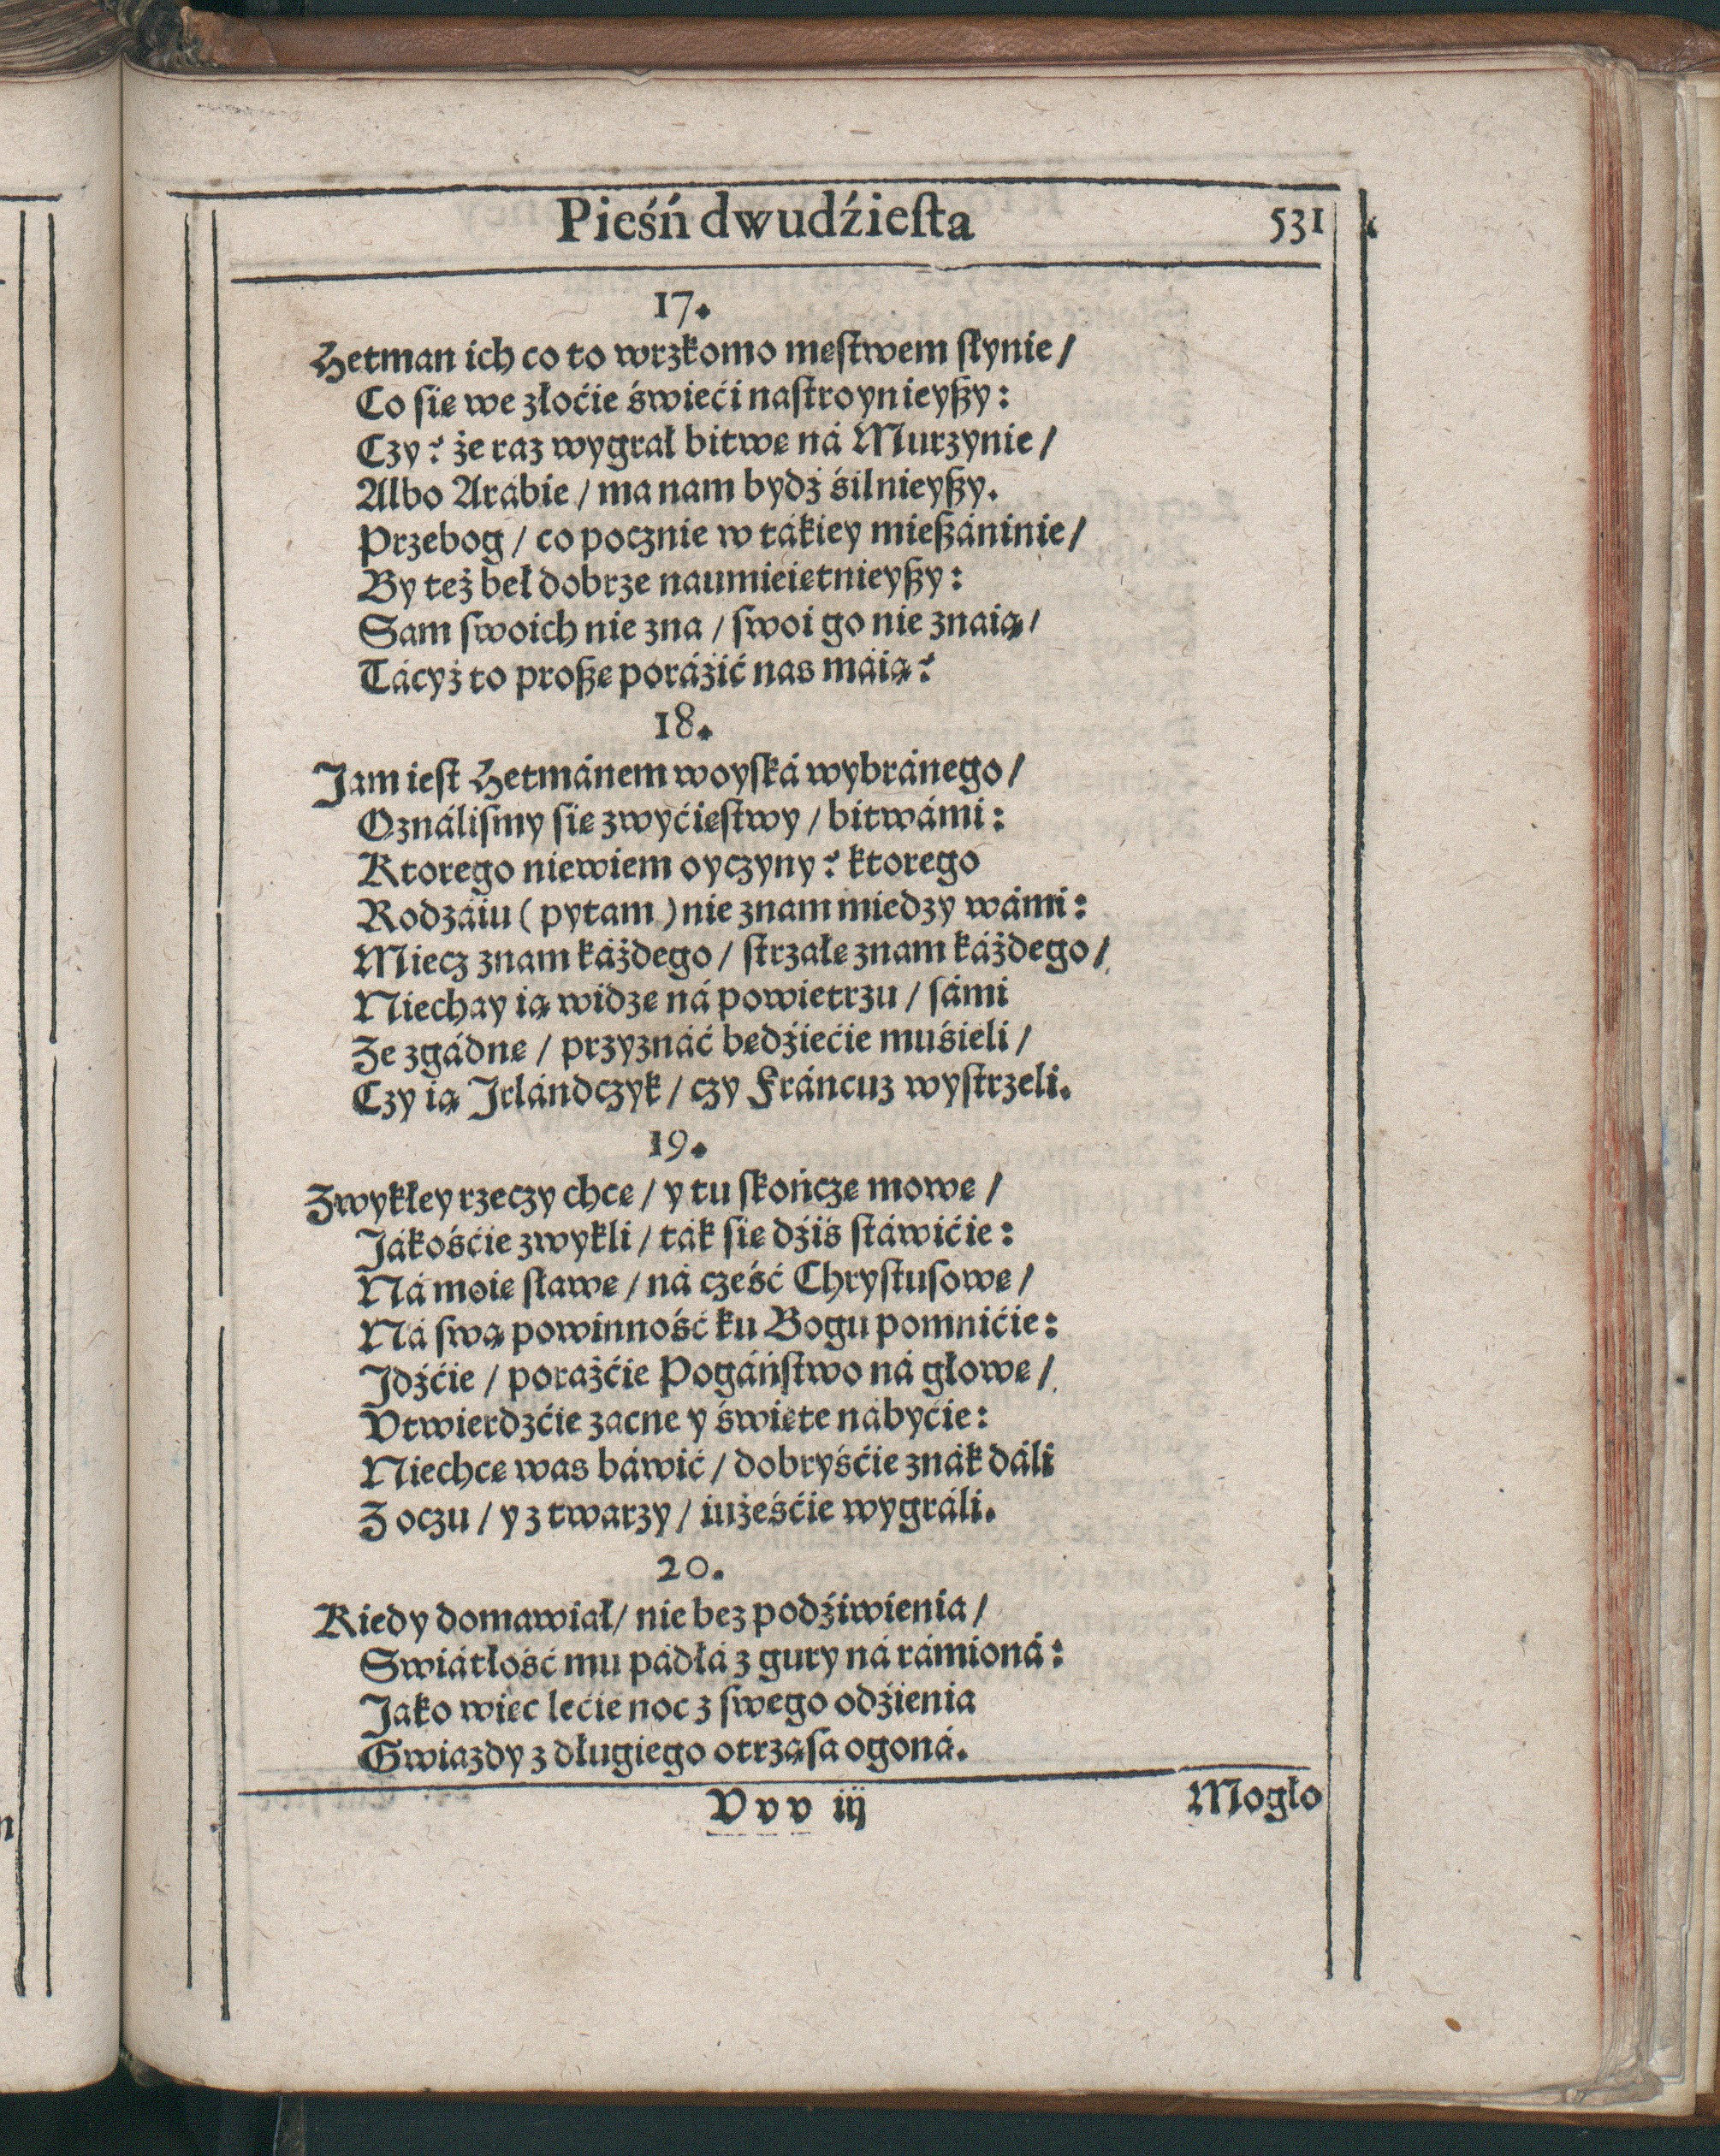 Pieśń dwudźieſta 531
17.
Hetman ich co to wrzkomo męſtwem ſłynie/
Co ſię we złoćie świeći naſtroynieyßy:
Czy? że raz wygrał bitwę ná Murzynie/
Albo Arábie/ ma nam bydź śilnieyßy.
Przebog/ co pocznie w tákiey mießáninie/
By też beł dobrze naumieiętnieyßy:
Sam ſwoich nie zna/ ſwoi go nie znaią/
Tácyż to proßę poráźić nas máią?
18.
Jam ieſt Hetmánem woyſká wybránego/
Oználiſmy ſię zwyćięſtwy/ bitwámi:
Ktorego niewiem oyczyny? ktorego
Rodzáiu (pytam) nie znam miedzy wámi:
Miecz znam káżdego/ ſtrzałę znam káżdego/
Niechay ią widzę ná powietrzu/ ſámi
Ze zgádnę/ przyznáć będźiećie muśieli/
Czy ią Jrlándczyk/ czy Fráncuz wyſtrzeli.
19.
Zwykłey rzeczy chcę/ y tu ſkończę mowę/
Jákośćie zwykli/ ták ſię dźiś ſtáwićie:
Ná moię ſławę/ ná cześć Chryſtuſowę/
Ná ſwą powinność ku Bogu pomnićie:
Jdźćie/ poraźćie Pogáńſtwo ná głowę/
Vtwierdzćie zacne y święte nabyćie:
Niechcę was báwić/ dobryśćie znák dáli
Z oczu/ y z twarzy/ iużeśćie wygráli.
20.
Kiedy domawiał/ nie bez podźiwienia/
Swiátłość mu pádłá z gury ná rámioná:
Jako więc lećie noc z ſwego odźienia
Gwiazdy z długiego otrząſa ogoná.
Vvv iij Mogło